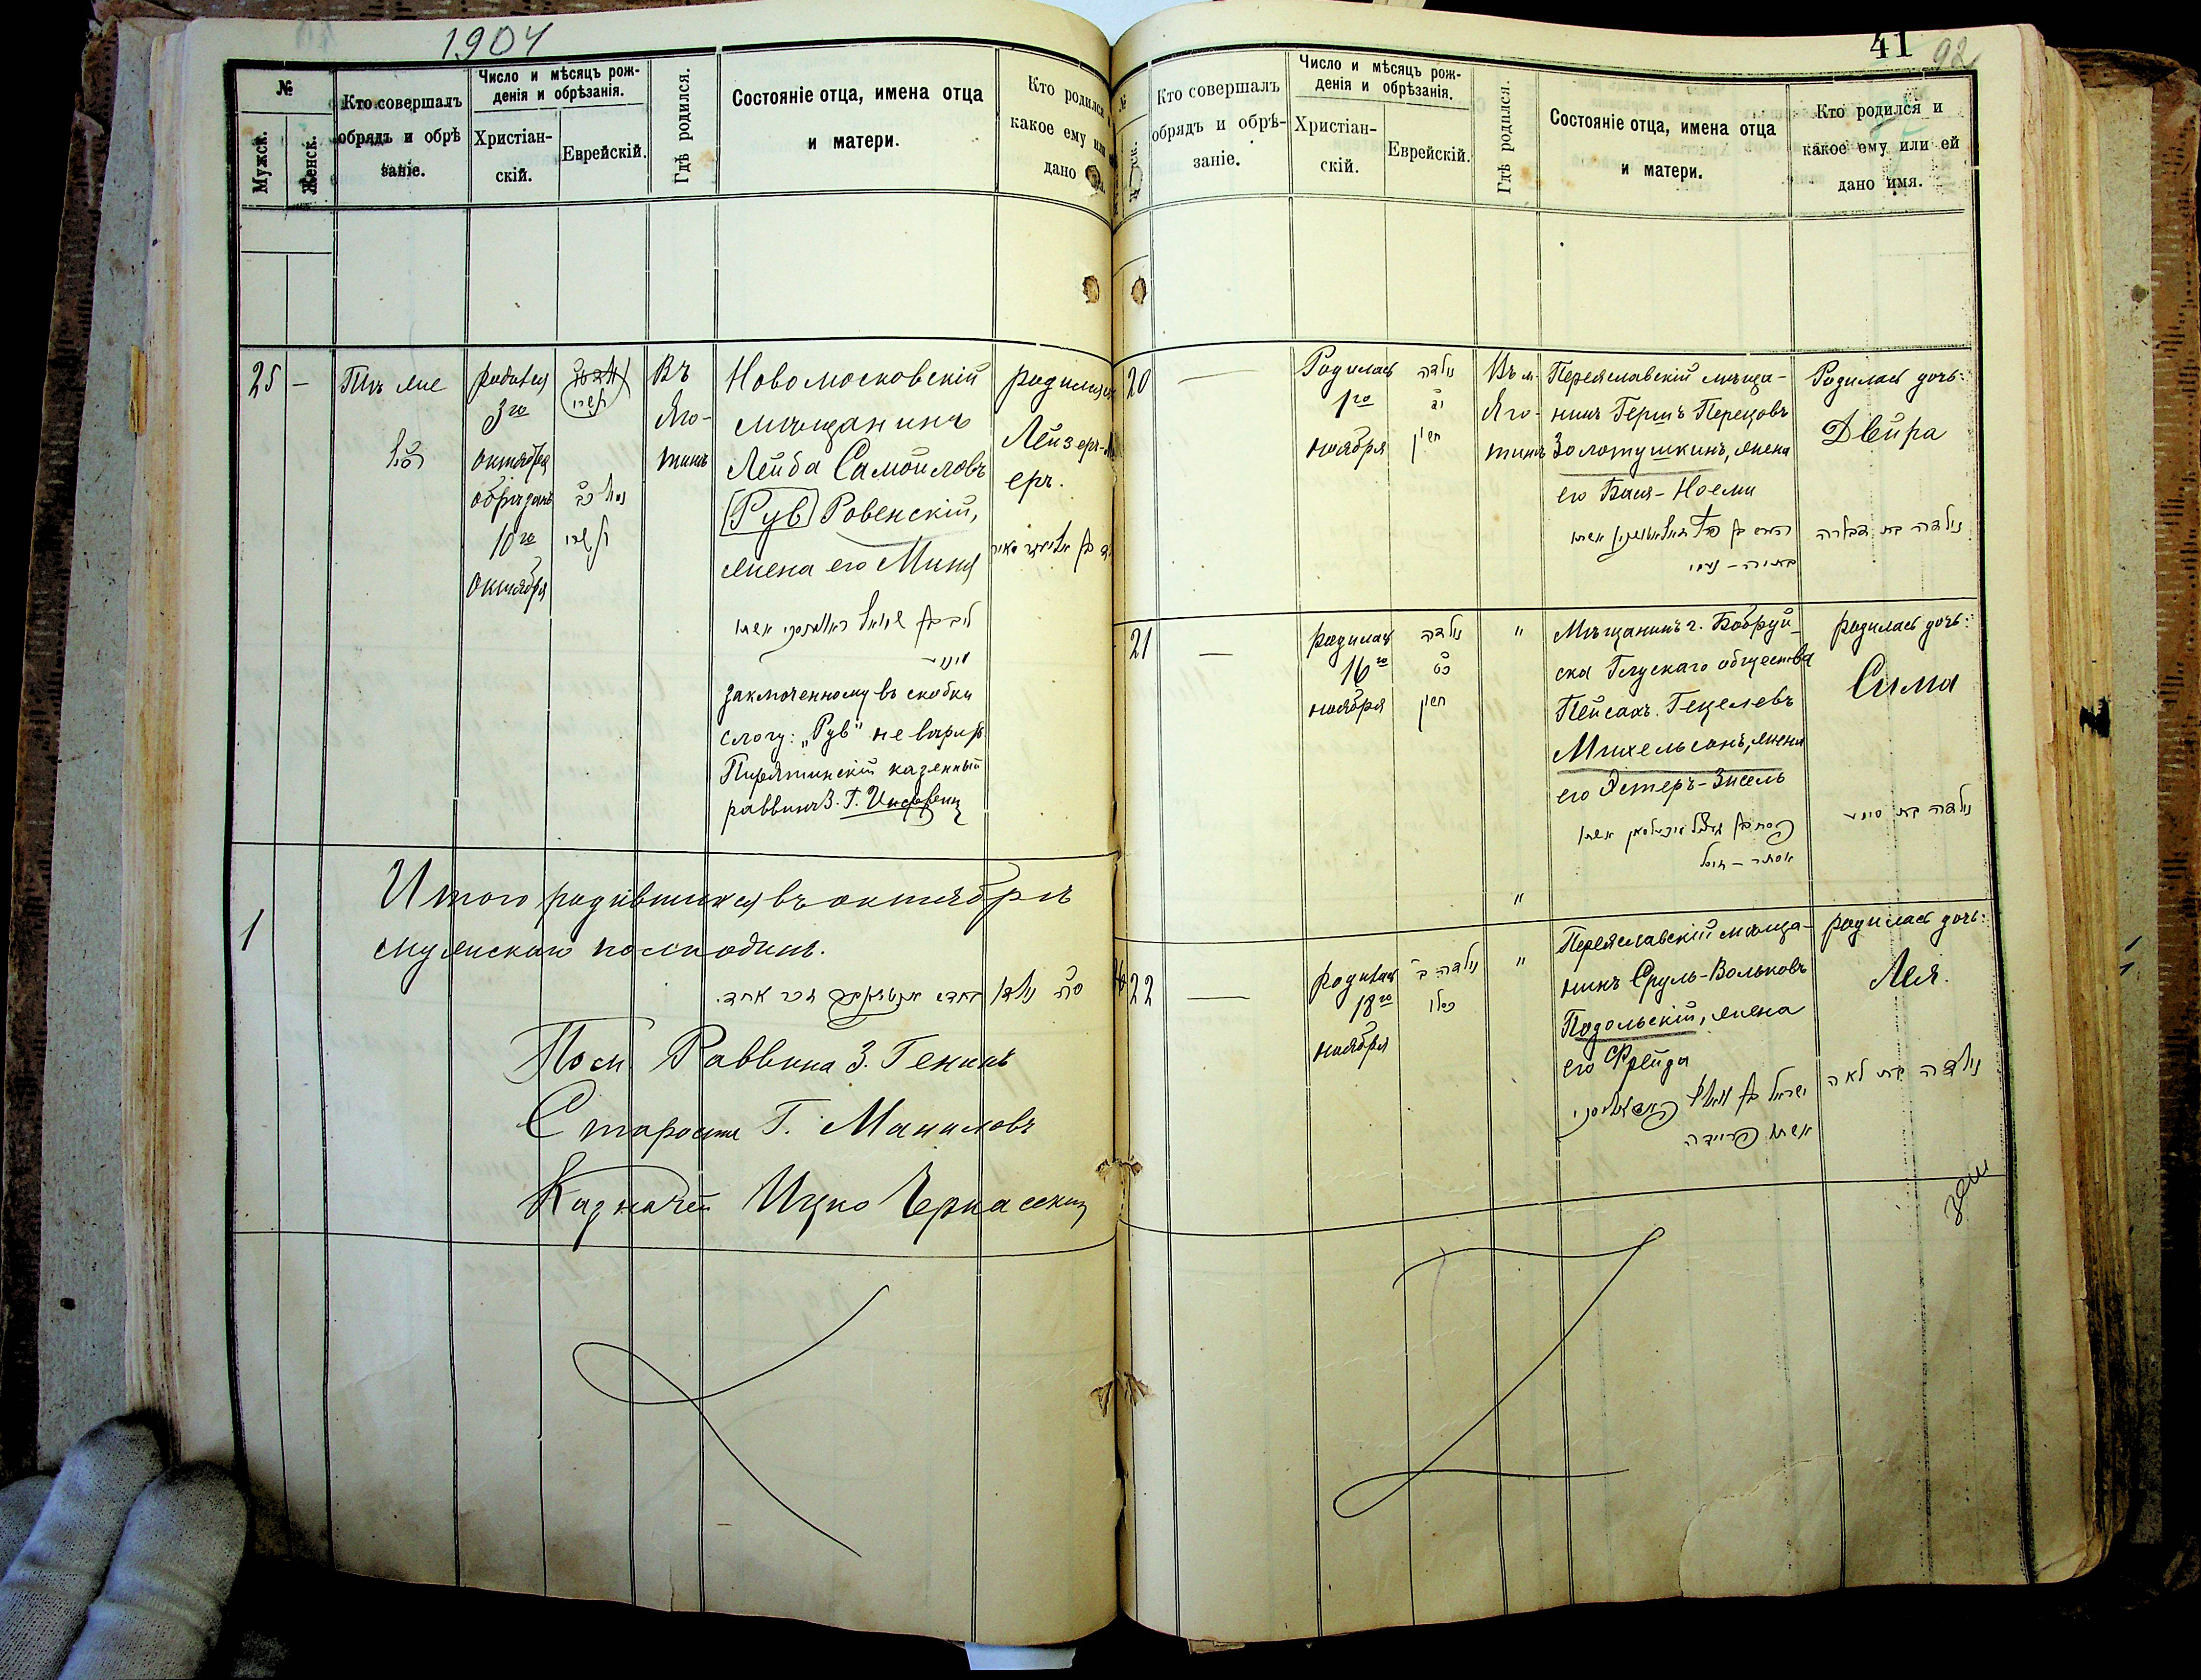 1904
№
Мужск.
Женск.
Кто совершалъ
обрядъ и обрѣ
заніе.
Число и мѣсяцъ рож-
денія и обрѣзанія.
Христіан-
скій.
Еврейскій.
Гдѣ родился.
Состояніе отца, имена отца
и матери.
Кто родился
какое ему или
дано
25 —
Тотъ же
родился
3го
октября
обрѣзанъ
10го
октября
תשרי
Въ
Яго-
тинѣ
Новомосковскій
мѣщанинъ
Лейба Самойловъ
[Рув] Ровенскій,
жена его Миня
заключенному въ скобки
слогу: „Рув" не вѣрить
Пирятинскій казенный
раввинъ З. Г.
родился
Лейзеръ-М
еръ.
1
Итого родившихся въ октябрѣ
мужскаго пола одинъ.
Пом. Раввина З. Генинъ
Староста Г. Маниловъ
Казначей Ицко Черкасскій
41
92
№
Кто совершалъ
обрядъ и обрѣ-
заніе.
Число и мѣсяцъ рож-
денія и обрѣзанія.
Христіан-
скій.
Еврейскій.
Гдѣ родился.
Состояніе отца, имена отца
и матери.
Кто родился и
какое ему или ей
дано имя.
20 —
Родилась
1го
ноября
נולדה
חשון
Въ м.
Яго-
тинѣ
Переяславскій мѣща-
нинъ Гершъ Перецовъ
Золотушкинъ, жена
его Бася-Ноеми
Родилась дочь:
Двейра
נולדה בת דבורה
21 —
родилась
16го
ноября
נולדה
כט
חשון
"
Мѣщанинъ г. Бобруй-
ска Глускаго общества
Пейсахъ Гецелевъ
Михельсонъ, жена
его Эстеръ-Зисель
אסתר - זיסל
родилась дочь:
Сима
נולדה בת סימא
"
22 —
родилась
18го
ноября
נולדה ב
כסלו
"
Переяславскій мѣща-
нинъ Сруль-Вольковъ
Подольскій, жена
его Фрейда
אשתו פריידה
родилась дочь:
Лея.
נולדה בת לאה